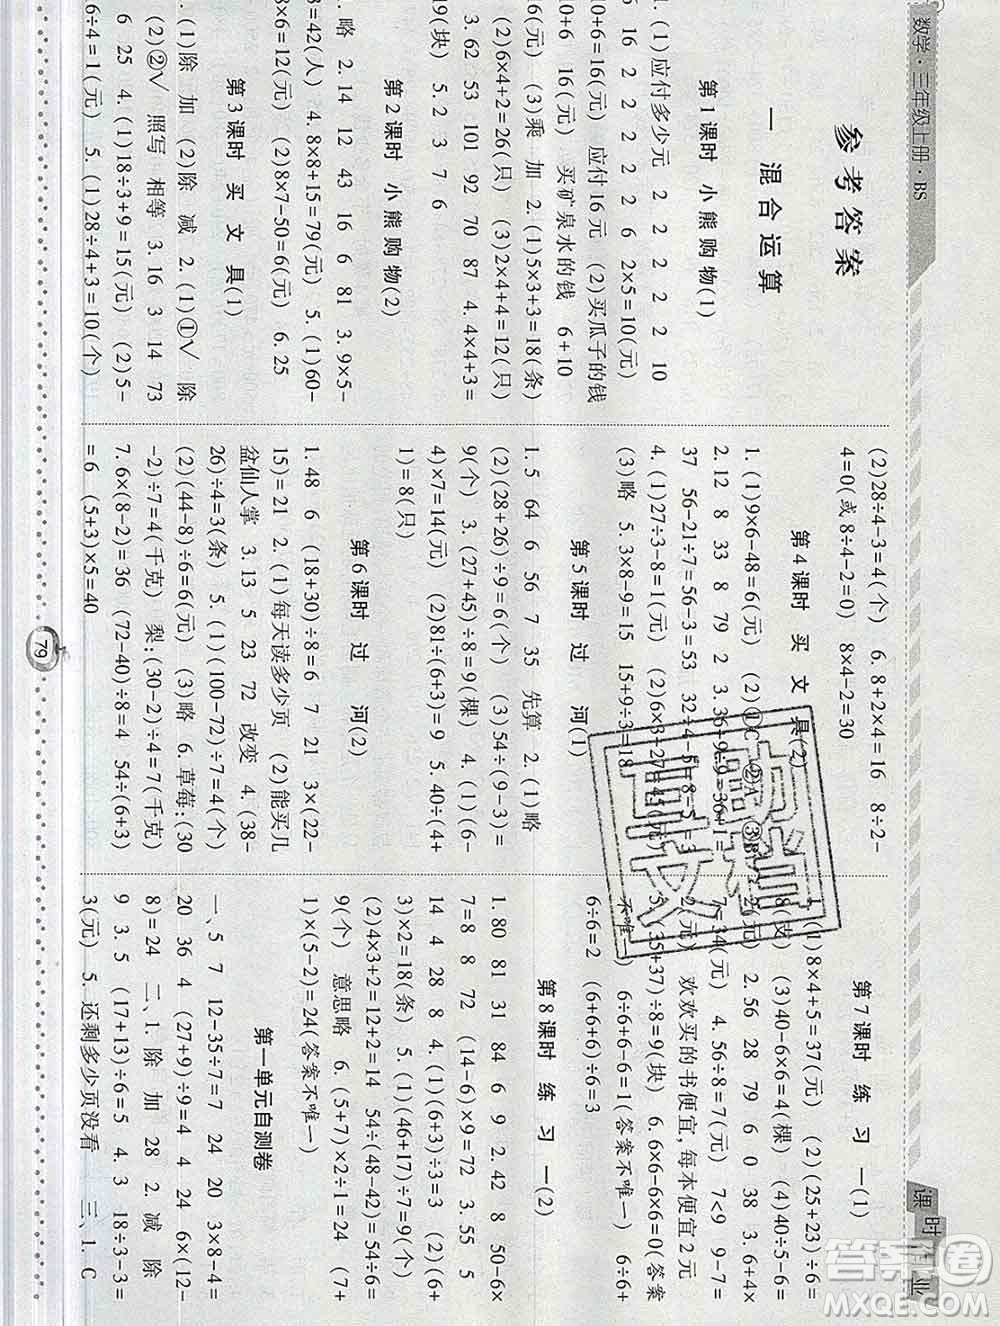 数学·三年级上册·BS
参考答案
一 混合运算
第1课时 小熊购物(1)
1. (1)应付多少元 2 2 2 2 10
6 16 2 2 2 6 2×5=10(元)
10+6=16(元) 应付16元 (2)买瓜子的钱
10+6 16(元) 买矿泉水的钱 6+10
16(元) (3)乘 加 2. (1)5×3+3=18(条)
(2)6×4+2=26(只) (3)2×4+4=12(只)
3. 62 53 101 92 70 87 4. 4×4+3=
19(块) 5. 2 3 7 6
第2课时 小熊购物(2)
1. 略 2. 14 12 43 16 6 81 3. 9×5-
3=42(人) 4. 8×8+15=79(元) 5. (1)60-
8×6=12(元) (2)8×7-50=6(元) 6. 25
第3课时 买文具(1)
1. (1)除 加 (2)除 减 2. (1)①√ 除
(2)②√ 照写 相等 3. 16 3 14 73
6 25 4. (1)18÷3+9=15(元) (2)5-
6÷4=1(元) 5. (1)28÷4+3=10(个)
(2)28÷4-3=4(个) 6. 8+2×4=16 8÷2-
4=0(或8÷4-2=0) 8×4-2=30
第4课时 买文具(2)
1. (1)9×6-48=6(元) (2)①C ②A ③B
2. 12 8 33 8 79 2 3. 36÷9÷9=36+1=
37 56-21÷7=56-3=53 32-5+8=
4. (1)27÷3-8=1(元) (2)6×3+27=
(3)略 5. 3×8-9=15 15+9÷3=18
第5课时 过河(1)
1. 5 64 6 56 7 35 先算 2. (1)略
(2)(28+26)÷9=6(个) (3)54÷(9-3)=
9(个) 3. (27+45)÷8=9(棵) 4. (1)(6-
4)×7=14(元) (2)81÷(6+3)=9 5. 40÷(4+
1)=8(只)
第6课时 过河(2)
1. 48 6 (18+30)÷8=6 7 21 3×(22-
15)=21 2. (1)每天读多少页 (2)能买几
盆仙人掌 3. 13 5 23 72 改变 4. (38-
26)÷4=3(条) 5. (1)(100-72)÷7=4(个)
(2)(44-8)÷6=6(元) (3)略 6. 草莓:(30
-2)÷7=4(千克) 梨:(30-2)÷4=7(千克)
7. 6×(8-2)=36 (72-40)÷8=4 54÷(6+3)
=6 (5+3)×5=40
第7课时 练习一(1)
1. (1)8×4+5=37(元) (2)(25+23)÷6=
8(支) (3)40-6×6=4(棵) (4)40÷5-6=
2(元) 2. 56 28 79 6 0 38 3. 6+4×
7=34(元) 4. 56÷8=7(元) 7<9 9-7=
2(元) 欢欢买的书便宜,每本便宜2元
5. (35+37)÷8=9(块) 6. 6×6×6=0(答案
不唯一) 6÷6+6-6=1(答案不唯一) 6÷6+
6÷6=2 (6+6+6)÷6=3
第8课时 练习一(2)
1. 80 81 31 84 6 9 2. 42 8 50-6×
7=8 8 72 (14-6)×9=72 3. 55 5
14 4 28 8 4. (1)(6+3)÷3=3 (2)(6+
3)×2=18(条) 5. (1)(46+17)÷7=9(个)
(2)4×3+2=14(个) 54÷(48-42)=54÷6=
9(个) 意思略 6. (5+7)×2÷1=24 (7+
1)×(5-2)=24(答案不唯一)
第一单元自测卷
一、5 7 12-35÷7=7 24 20 3×8-4=
20 36 4 (27+9)÷9=4 4 24 6×(12-
8)=24 二、1. 除 加 28 2. 减 除
9 3. 5 (17+13)÷6=5 4. 3 18÷3-3=
3(元) 5. 还剩多少页没看 三、1. C
79
课时作业
答案圈
MXQE.COM